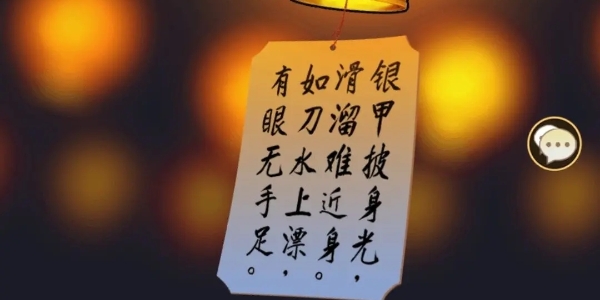 银甲披身光，
滑溜难近身。
如刀水上漂，
有眼无手足。